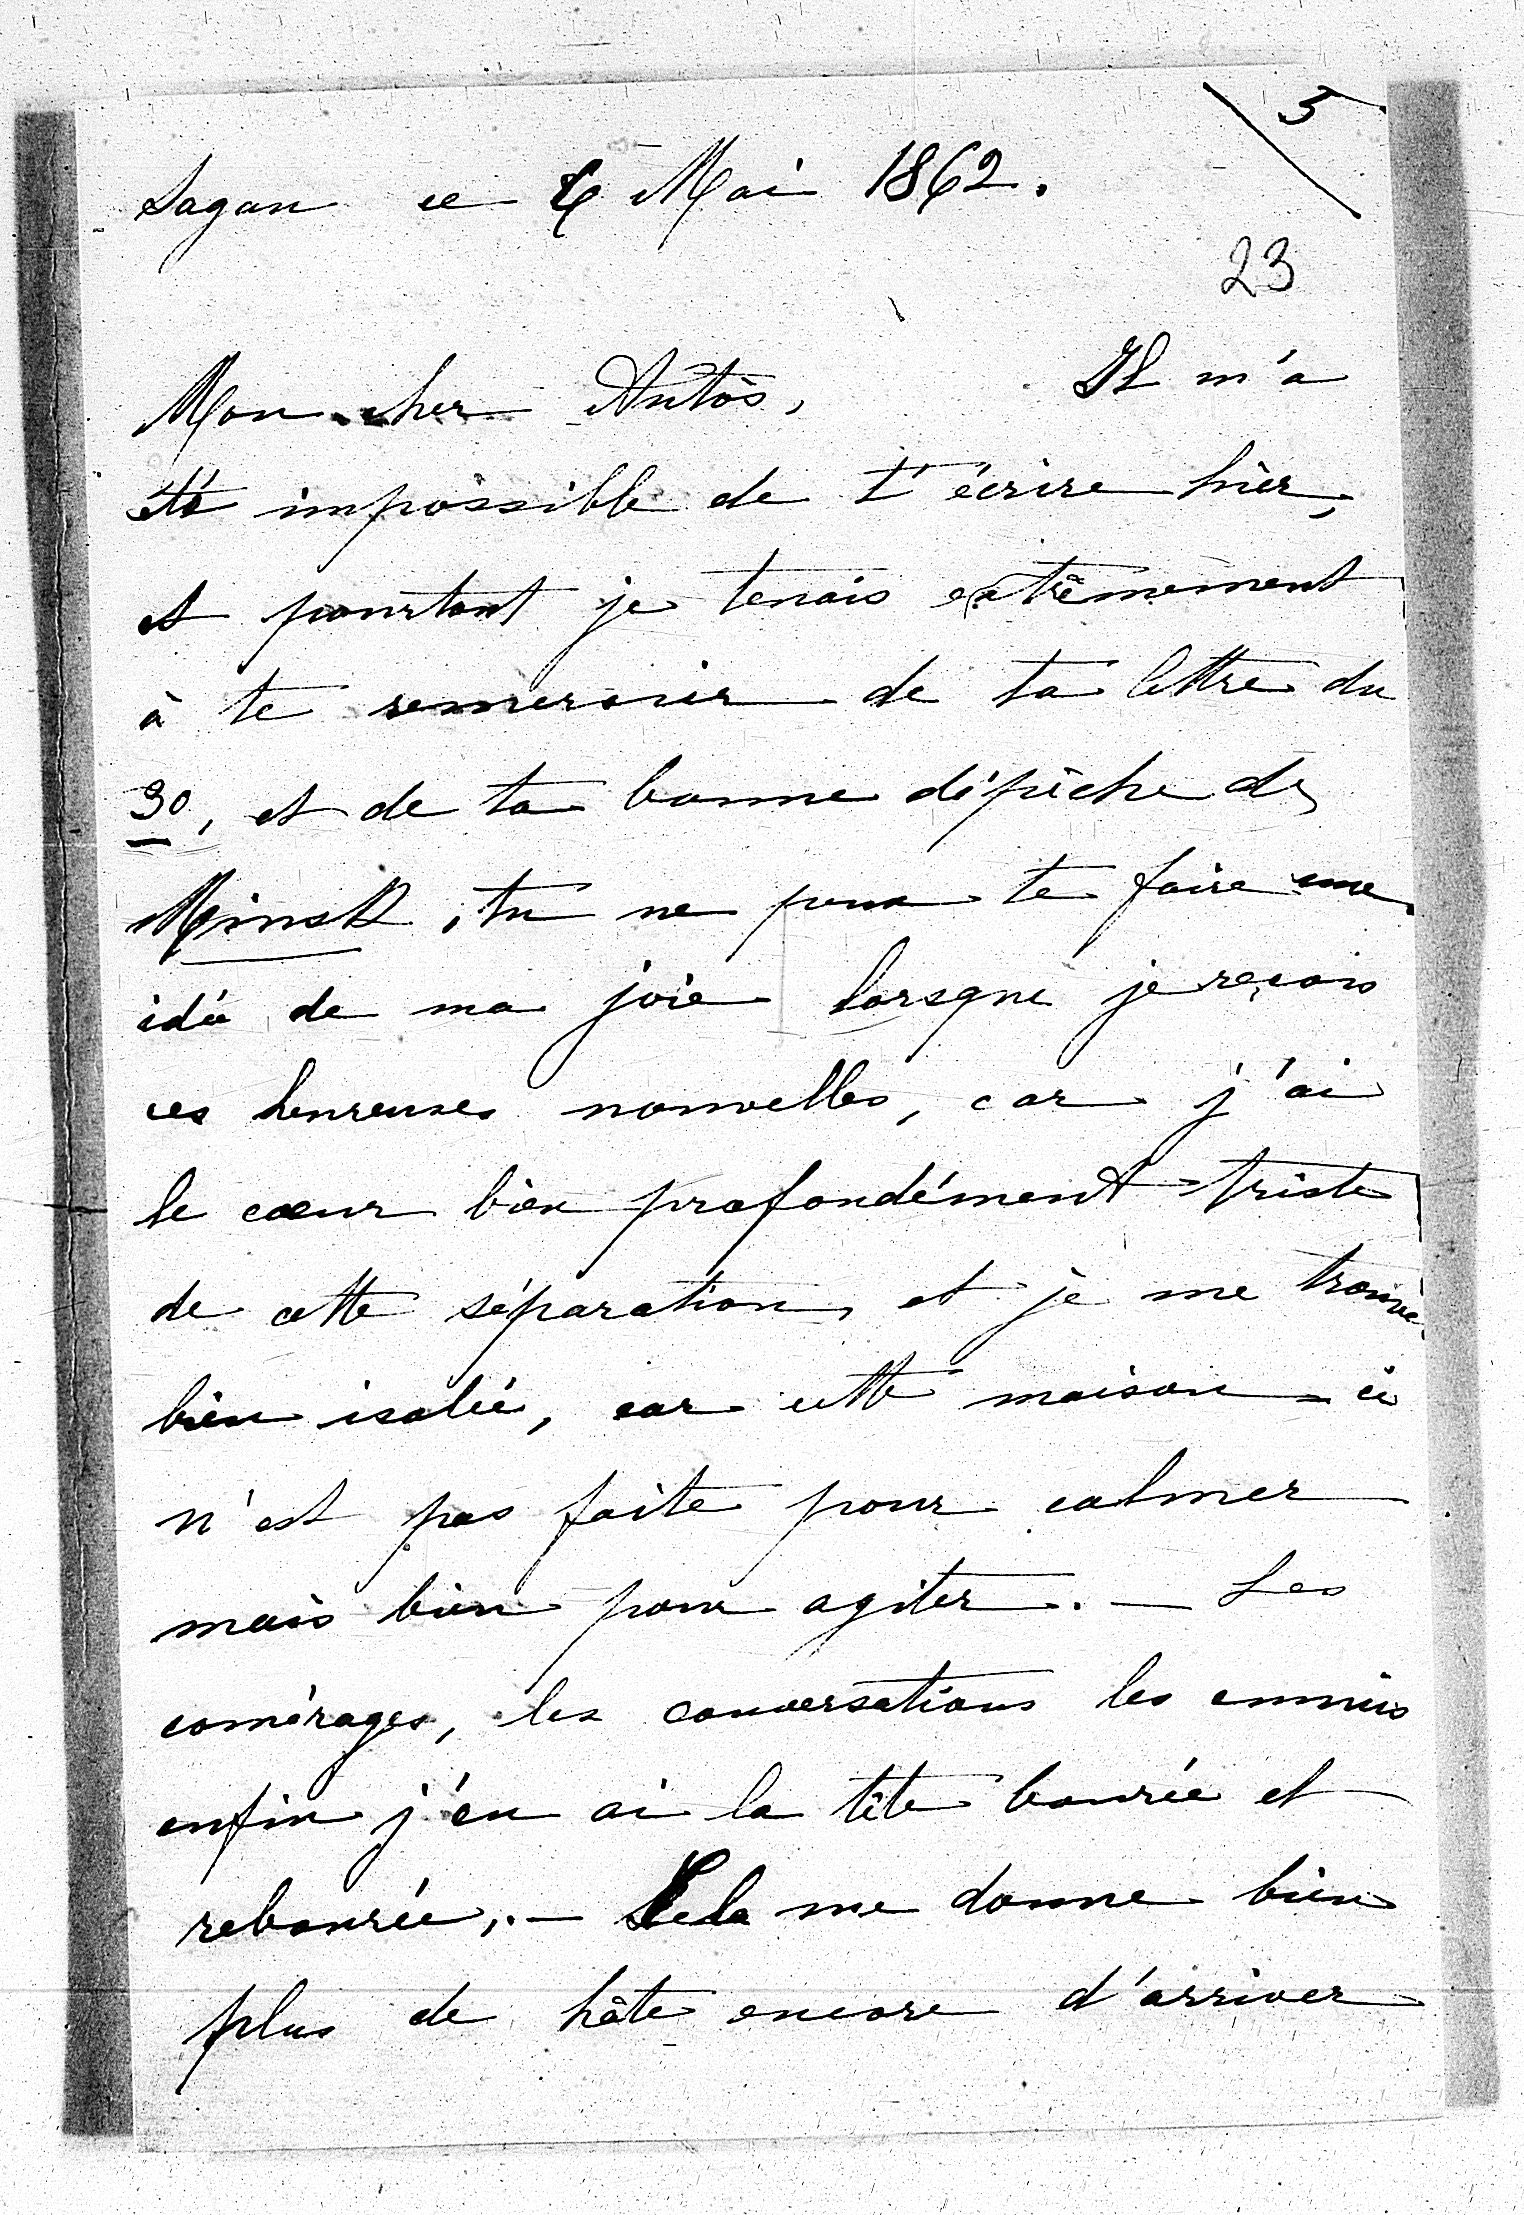 5
Sagan ce 6 Mai 1862.
23
Mon cher Antôs, Il m'a
été impossible de t'écrire hier,
et pourtant je tenais extrêmement
à te remercier de ta lettre du
30, et de ta bonne dépêche de
Minsk, tu ne peux te faire une
idée de ma joie lorsque je reçois
ces heureuses nouvelles, car j'ai
le cœur bien profondément triste
de cette séparation, et je me trouve
bien isolée, car cette maison-ci
n'est pas faite pour calmer
mais bien pour agiter. — Les
comérages, les conversations les ennuis
enfin j'en ai la tête bourée et
rebourée,. — Cela me donne bien
plus de hâte encore d'arriver